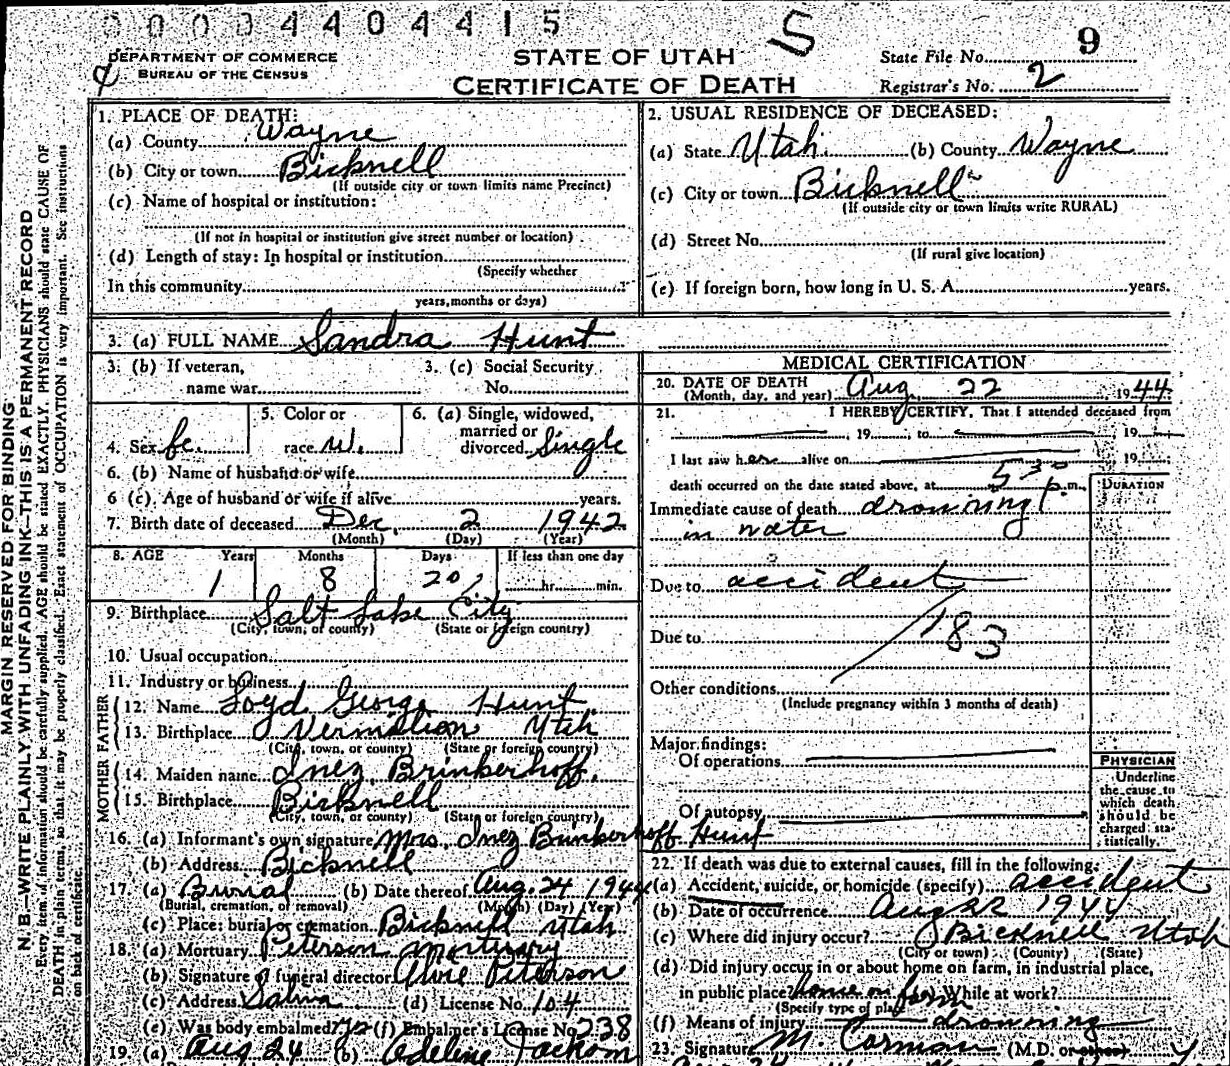 0000440441 5
S
9
DEPARTMENT OF COMMERCE
BUREAU OF THE CENSUS
STATE OF UTAH
CERTIFICATE OF DEATH
State File No.
Registrar's No. 2
MARGIN RESERVED FOR BINDING
N.B.—WRITE PLAINLY WITH UNFADING INK—THIS IS A PERMANENT RECORD
Every item of information should be carefully supplied. AGE should be stated EXACTLY. PHYSICIANS should state CAUSE OF
DEATH in plain terms, so that it may be properly classified. Exact statement of OCCUPATION is very important. See instructions
on back of certificate.
1. PLACE OF DEATH:
(a) County Wayne
(b) City or town Bicknell
(If outside city or town limits name Precinct)
(c) Name of hospital or institution:
(If not in hospital or institution give street number or location)
(d) Length of stay: In hospital or institution
(Specify whether
In this community
years, months or days)
2. USUAL RESIDENCE OF DECEASED:
(a) State Utah (b) County Wayne
(c) City or town Bicknell
(If outside city or town limits write RURAL)
(d) Street No.
(If rural give location)
(e) If foreign born, how long in U. S. A. years.
3. (a) FULL NAME Sandra Hunt
3. (b) If veteran, 3. (c) Social Security
name war No.
4. Sex fe. 5. Color or race w. 6. (a) Single, widowed, married or divorced Single
6. (b) Name of husband or wife
6 (c). Age of husband or wife if alive years.
7. Birth date of deceased Dec. 2 1942
(Month) (Day) (Year)
8. AGE Years Months Days If less than one day
1 8 20 hr. min.
9. Birthplace Salt Lake City
(City, town, or county) (State or foreign country)
10. Usual occupation
11. Industry or business
FATHER
12. Name Loyd George Hunt
13. Birthplace Vermilion Utah
(City, town, or county) (State or foreign country)
MOTHER
14. Maiden name Inez Brinkerhoff
15. Birthplace Bicknell
(City, town, or county) (State or foreign country)
16. (a) Informant's own signature Mrs. Inez Brinkerhoff Hunt
(b) Address Bicknell
17. (a) Burial (b) Date thereof Aug. 24 1944
(Burial, cremation, or removal) (Month) (Day) (Year)
(c) Place: burial or cremation Bicknell Utah
18. (a) Mortuary Peterson Mortuary
(b) Signature of funeral director Alvie Peterson
(c) Address Salina (d) License No. 104
(e). Was body embalmed? (f) Embalmer's License No. 238
19. (a) Aug 24 (b) Adeline Jackson
MEDICAL CERTIFICATION
20. DATE OF DEATH
(Month, day, and year) Aug 22 1944
21. I HEREBY CERTIFY, That I attended deceased from
, 19 , to 19
I last saw her alive on 19
death occurred on the date stated above, at 5 30 p.m.
DURATION
Immediate cause of death drowning
in water
Due to accident
183
Due to
Other conditions
(Include pregnancy within 3 months of death)
Major findings:
Of operations
Of autopsy
PHYSICIAN
Underline
the cause to
which death
should be
charged sta-
tistically.
22. If death was due to external causes, fill in the following:
(a) Accident, suicide, or homicide (specify) accident
(b) Date of occurrence Aug 22 1944
(c) Where did injury occur? Bicknell Utah
(City or town) (County) (State)
(d) Did injury occur in or about home on farm, in industrial place,
in public place? home on farm While at work?
(Specify type of place)
(f) Means of injury drowning
23. Signature M. Corman (M.D. or other)